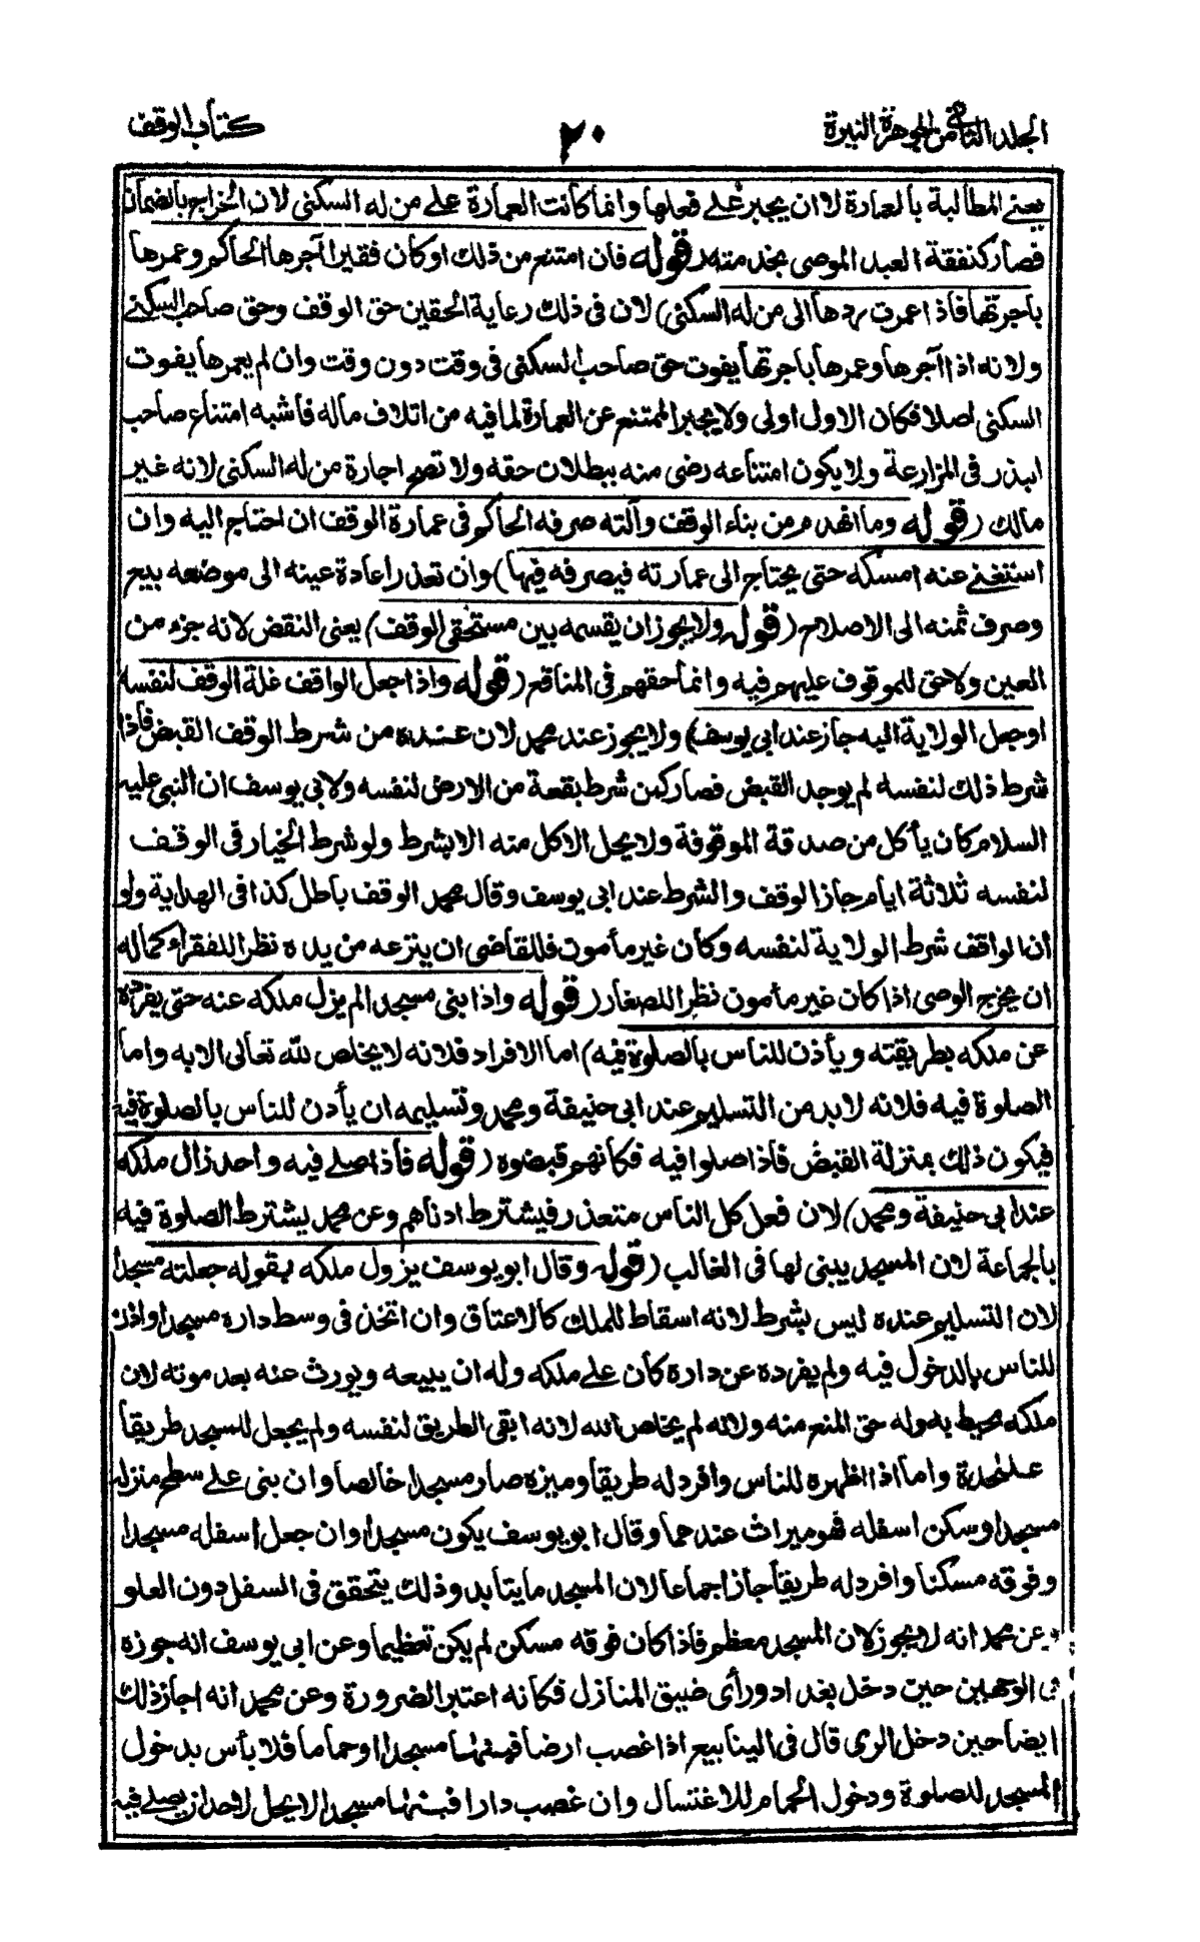 الجلد الثانی من الجوهرة النیرة
۲۰
کتاب الوقف
یعنی المطالبة بالعمارة لا ان یجبر علی فعلها وانما کانت العمارة علی من له السکنی لان الخراج بالضمان
فصار کنفقة العبد الموصی بخدمته (قوله فان امتنع من ذلك او کان فقیرا آجرها الحاکم وعمرها
باجرتها فاذا عمرت ردها الی من له السکنی) لان فی ذلك رعایة الحقین حق الوقف وحق صاحب السکنی
ولانه اذا آجرها وعمرها باجرتها یفوت حق صاحب السکنی فی وقت دون وقت وان لم یعمرها یفوت
السکنی اصلا فکان الاول اولی ولا یجبر الممتنع عن العمارة لما فیه من اتلاف ماله فاشبه امتناع صاحب
البذر فی المزارعة ولا یکون امتناعه رضی منه ببطلان حقه ولا تصح اجارة من له السکنی لانه غیر
مالك (قوله وما انهدم من بناء الوقف وآلته صرفه الحاکم فی عمارة الوقف ان احتاج الیه وان
استغنی عنه امسکه حتی یحتاج الی عمارته فیصرفه فیها) وان تعذر اعادة عینه الی موضعه بیع
وصرف ثمنه الی الاصلاح (قوله ولا یجوز ان یقسمه بین مستحقی الوقف) یعنی النقض لانه جزء من
العین ولا حق للموقوف علیهم فیه وانما حقهم فی المنافع (قوله واذا جعل الواقف غلة الوقف لنفسه
او جعل الولایة الیه جاز عند ابی یوسف) ولا یجوز عند محمد لان عنده من شرط الوقف القبض فاذا
شرط ذلك لنفسه لم یوجد القبض فصار کمن شرط بقعة من الارض لنفسه ولابی یوسف ان النبی علیه
السلام کان یأکل من صدقة الموقوفة ولا یحل الاکل منه الا بشرط ولو شرط الخیار فی الوقف
لنفسه ثلاثة ایام جاز الوقف والشرط عند ابی یوسف وقال محمد الوقف باطل کذا فی الهدایة ولو
ان الواقف شرط الولایة لنفسه وکان غیر مأمون فللقاضی ان ینزعه من یده نظرا للفقراء کما له
ان یخرج الوصی اذا کان غیر مأمون نظرا للصغار (قوله واذا بنی مسجدا لم یزل ملکه عنه حتی یفرده
عن ملکه بطریقته ویأذن للناس بالصلوة فیه) اما الافراد فلانه لا یخلص لله تعالی الا به واما
الصلوة فیه فلانه لا بد من التسلیم عند ابی حنیفة ومحمد وتسلیمه ان یأذن للناس بالصلوة فیه
فیکون ذلك بمنزلة القبض فاذا صلوا فیه فکأنهم قبضوه (قوله فاذا صلی فیه واحد زال ملکه
عند ابی حنیفة ومحمد) لان فعل کل الناس متعذر فیشترط ادناهم وعن محمد یشترط الصلوة فیه
بالجماعة لان المسجد یبنی لها فی الغالب (قوله وقال ابو یوسف یزول ملکه بقوله جعلته مسجدا
لان التسلیم عنده لیس بشرط لانه اسقاط للملك کالاعتاق وان اتخذ فی وسط داره مسجدا واذن
للناس بالدخول فیه ولم یفرده عن داره کان علی ملکه وله ان یبیعه ویورث عنه بعد موته لان
ملکه محیط به وله حق المنع منه ولانه لم یخلص الله لانه ابقی الطریق لنفسه ولم یجعل للمسجد طریقا
علیحدة واما اذا اظهره للناس وافرد له طریقا ومیزه صار مسجدا خالصا وان بنی علی سطح منزله
مسجدا وسکن اسفله فهو میراث عندهما وقال ابو یوسف یکون مسجدا وان جعل اسفله مسجدا
وفوقه مسکنا وافرد له طریقا جاز اجماعا لان المسجد ما یتابد وذلك یتحقق فی السفل دون العلو
وعن محمد انه لا یجوز لان المسجد معظم فاذا کان فوقه مسکن لم یکن تعظیما وعن ابی یوسف انه جوزه
فی الوجهین حین دخل بغداد ورأی ضیق المنازل فکانه اعتبر الضرورة وعن محمد انه اجاز ذلك
ایضا حین دخل الری قال فی الینابیع اذا غصب ارضا فبناها مسجدا او حماما فلا بأس بدخول
المسجد للصلوة ودخول الحمام للاغتسال وان غصب دارا فبناها مسجدا لا یحل لاحد ان یصلی فیه